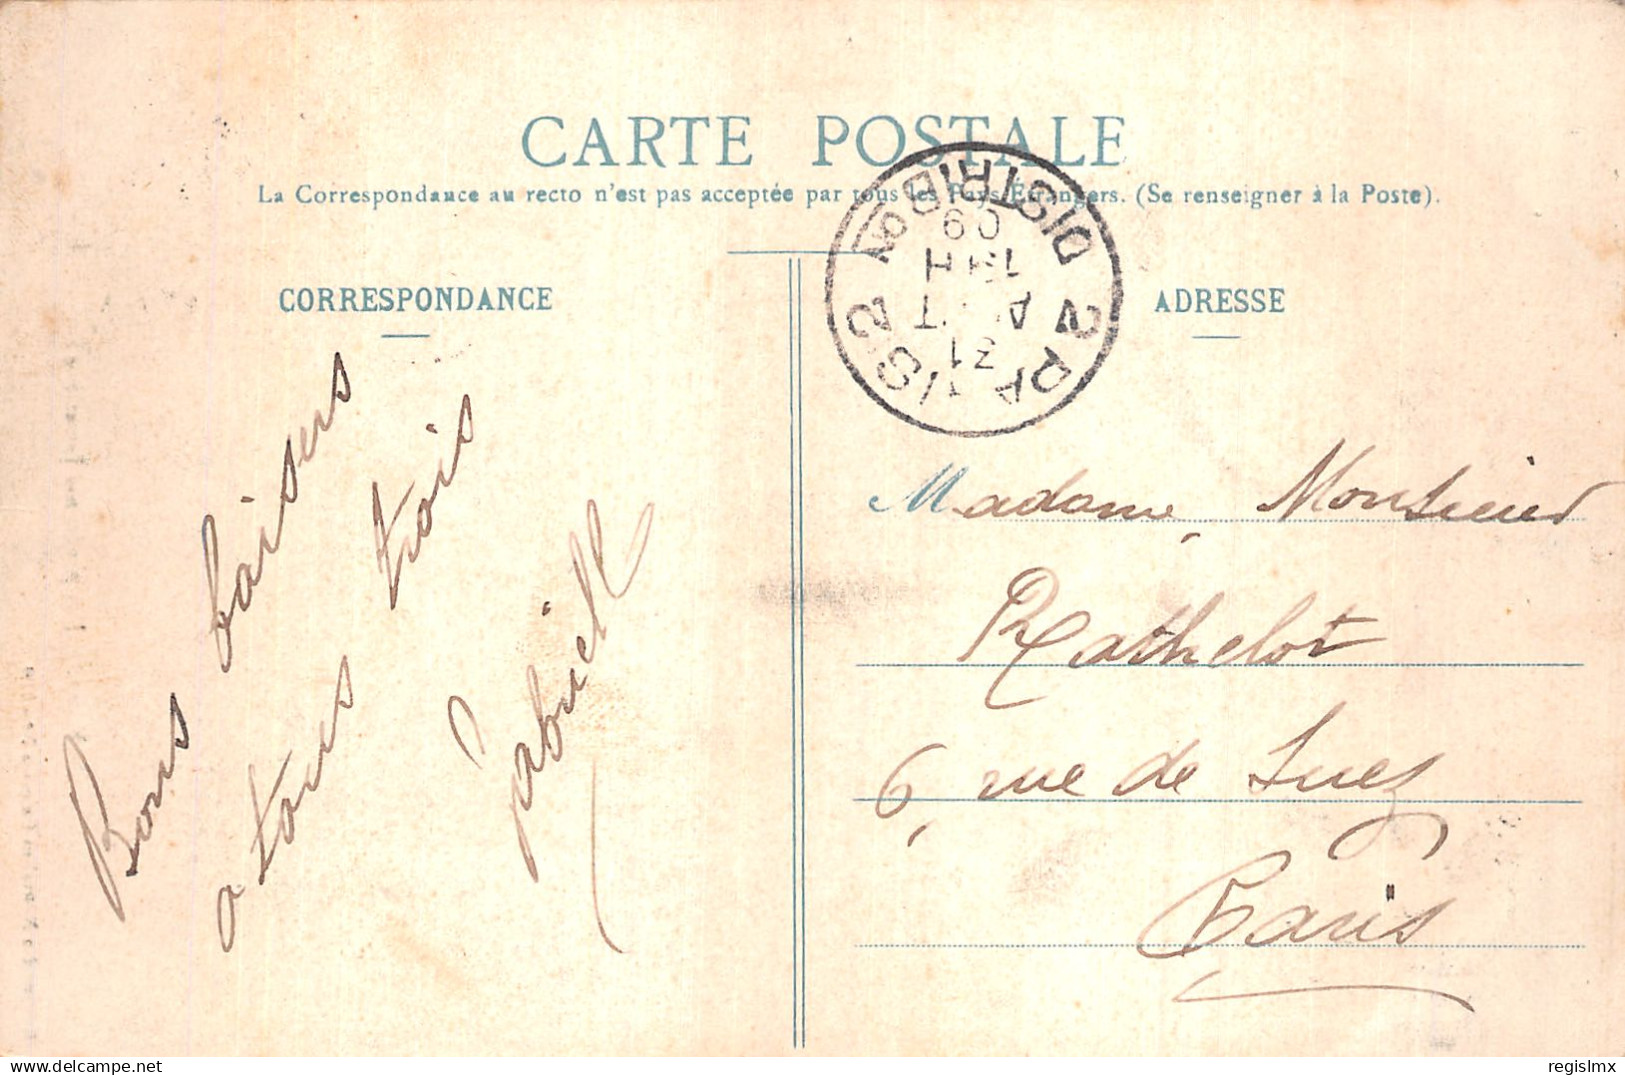 CARTE POSTALE
La Correspondance au recto n'est pas acceptée par tous les Pays Étrangers. (Se renseigner à la Poste).
CORRESPONDANCE
ADRESSE
PARIS 2
DISTRIBON
31
AOUT
09
Bons baisers
a tous trois
Gabrielle
Madame, Monsieur
Rathelot
6, rue de Suez
Paris
delcampe.net
regislmx